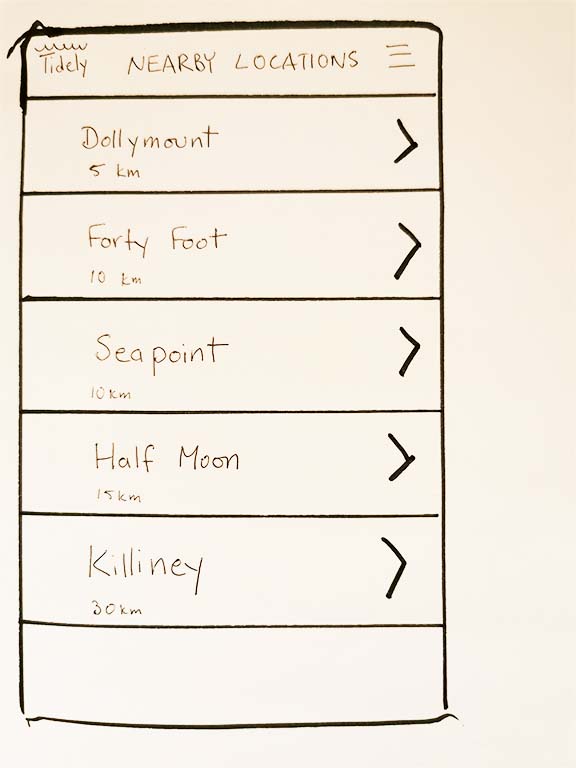 Tidely NEARBY LOCATIONS
Dollymount
5 km
Forty Foot
10 km
Seapoint
10 km
Half Moon
15 km
Killiney
30 km